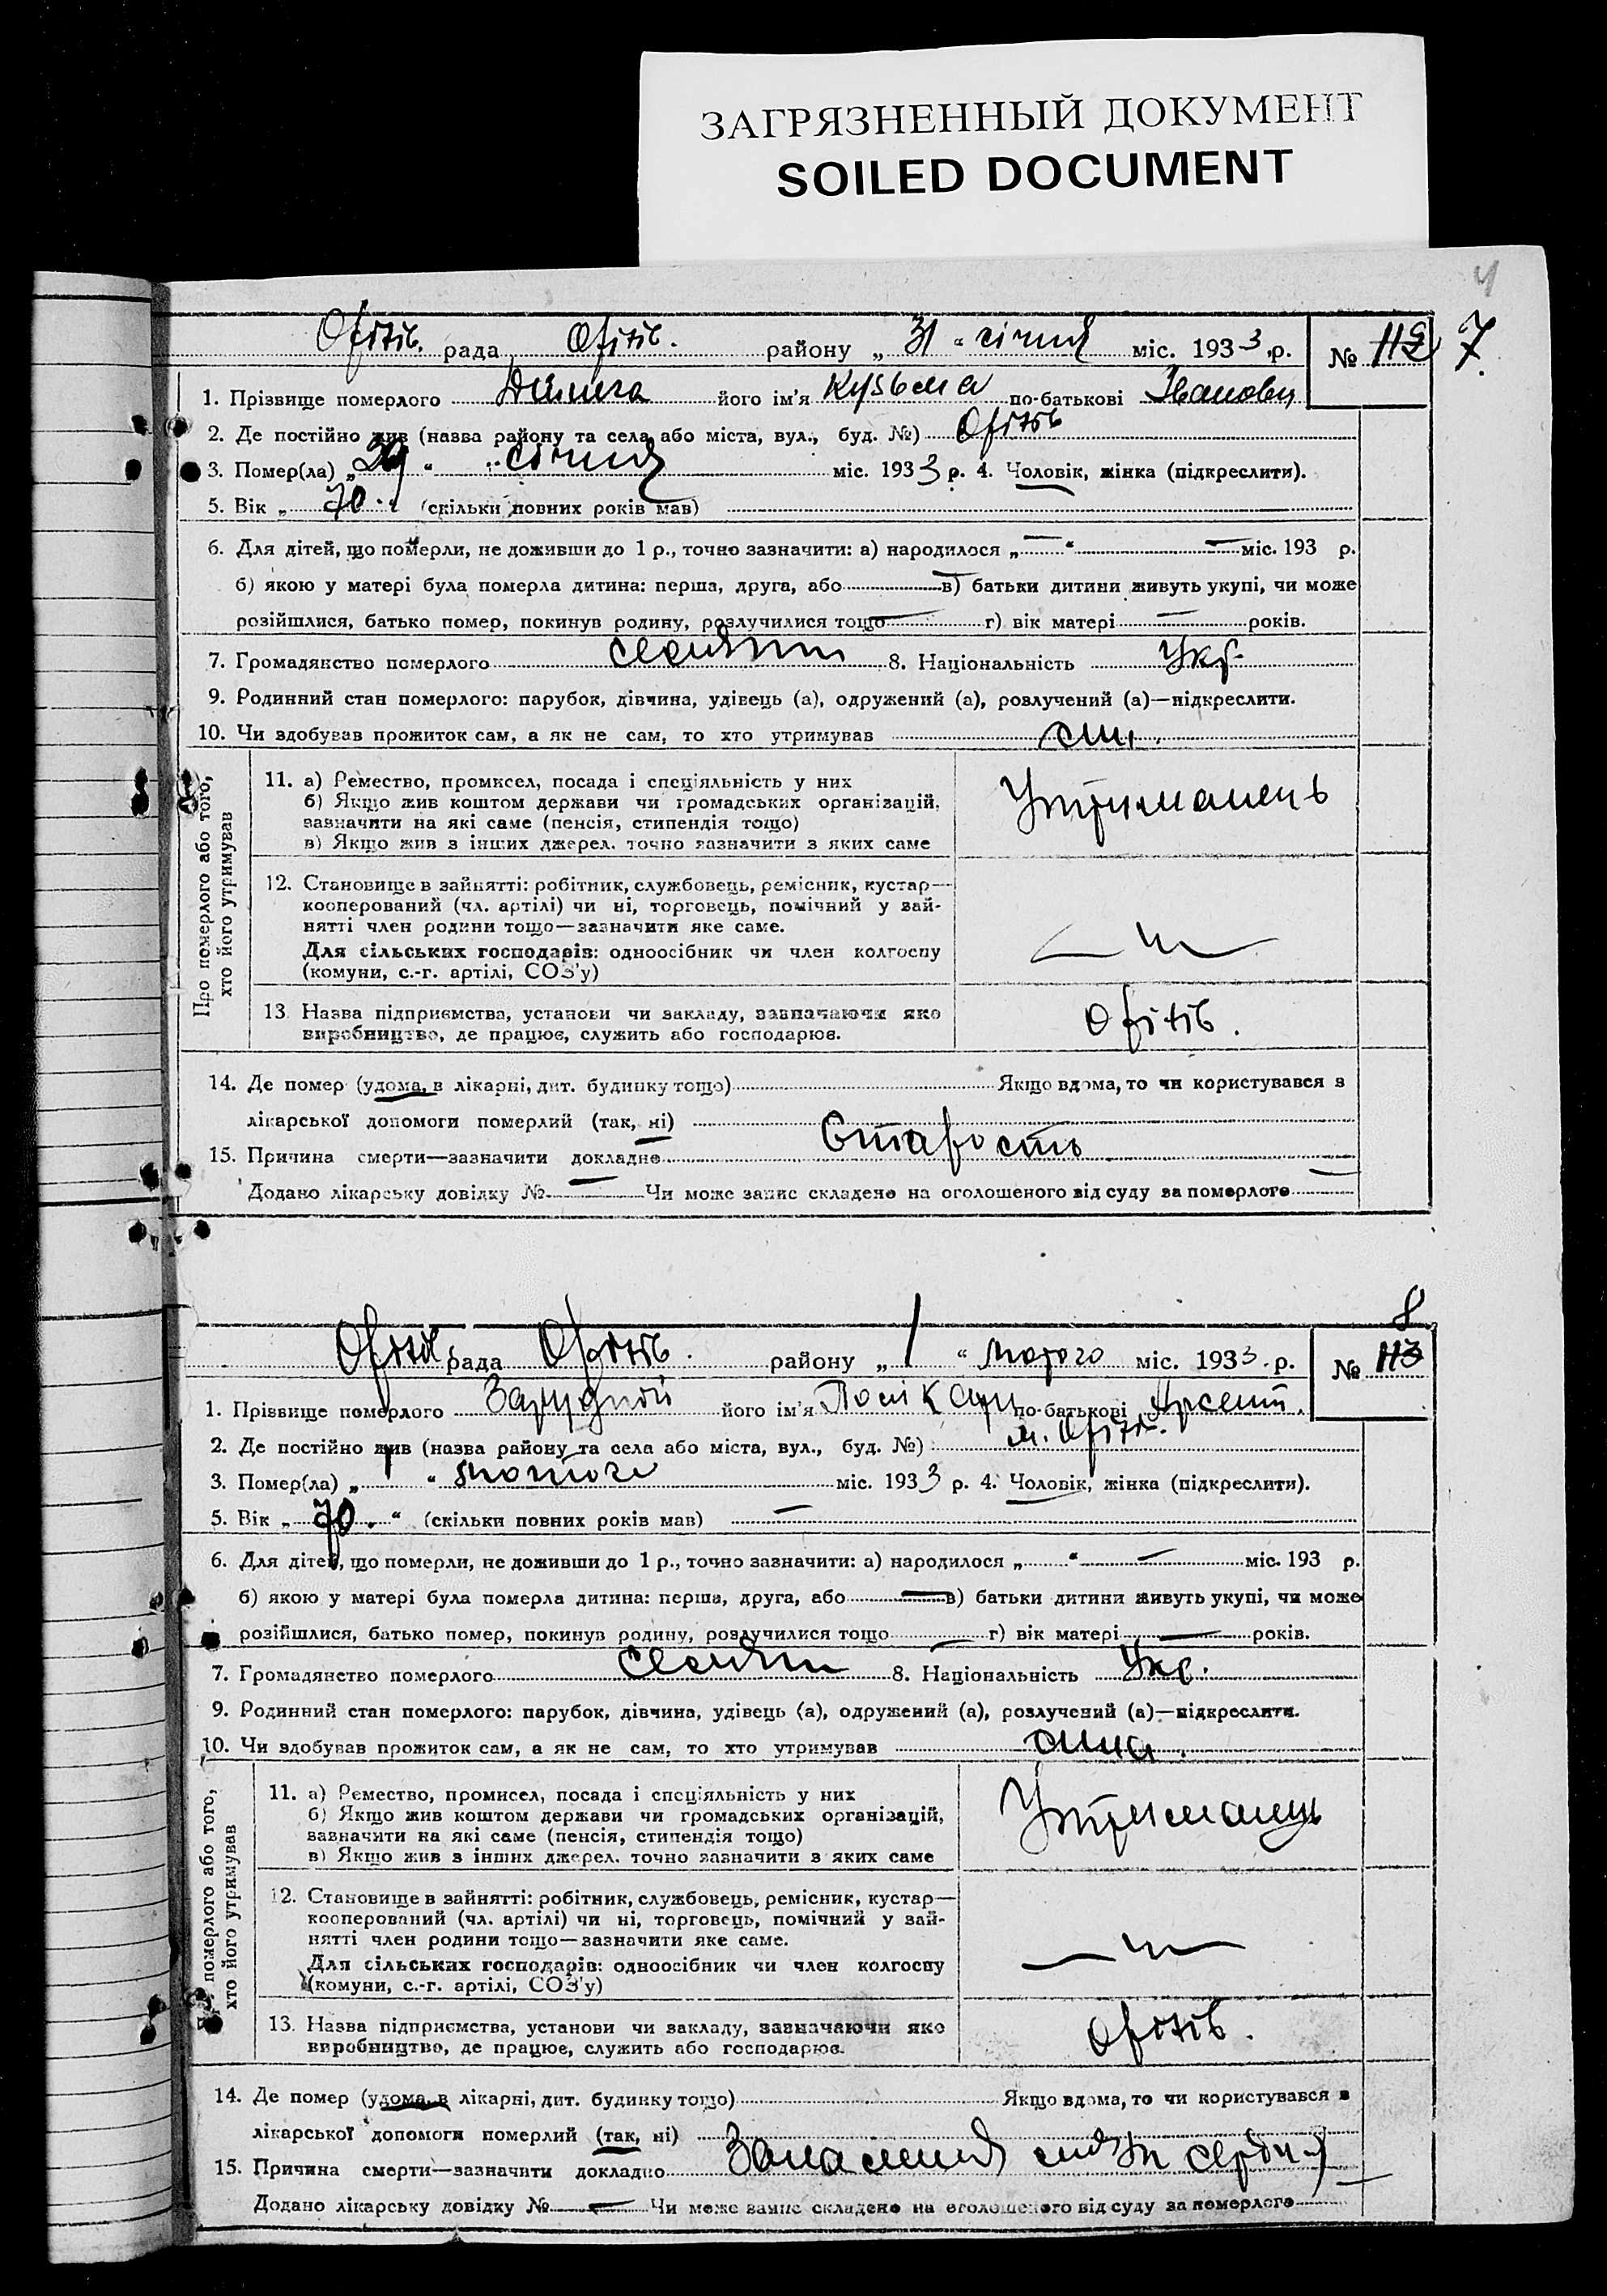 ЗАГРЯЗНЕННЫЙ ДОКУМЕНТ
SOILED DOCUMENT
4
Оратів. рада Оратів. району „ 31 “ січня міс. 1933 р. № 112 7
1. Прізвище померлого його ім'я Кузьма по-батькові Іванович
2. Де постійно жив (назва району та села або міста, вул., буд. №) Оратів
3. Помер(ла) „ 29 “ січня міс. 1933 р. 4. Чоловік, жінка (підкреслити).
5. Вік „ 70 “ (скільки повних років мав)
6. Для дітей, що померли, не доживши до 1 р., точно зазначити: а) народилося „ — “ — міс. 193 р.
б) якою у матері була померла дитина: перша, друга, або — в) батьки дитини живуть укупі, чи може
розійшлися, батько помер, покинув родину, розлучилися тощо — г) вік матері — років.
7. Громадянство померлого 8. Національність Укр.
9. Родинний стан померлого: парубок, дівчина, удівець (а), одружений (а), розлучений (а)—підкреслити.
10. Чи здобував прожиток сам, а як не сам, то хто утримував
Про померлого або того,
хто його утримував
11. а) Ремество, промисел, посада і спеціяльність у них
б) Якщо жив коштом держави чи громадських організацій,
зазначити на які саме (пенсія, стипендія тощо)
в) Якщо жив з інших джерел, точно зазначити з яких саме
Утриманець
12. Становище в зайнятті: робітник, службовець, ремісник, кустар—
кооперований (чл. артілі) чи ні, торговець, помічний у зай-
нятті член родини тощо—зазначити яке саме.
Для сільських господарів: одноосібник чи член колгоспу
(комуни, с.-г. артілі, СОЗ'у)
— „ —
13. Назва підприємства, установи чи закладу, зазначаючи яке
виробництво, де працює, служить або господарює.
Оратів.
14. Де помер (удома, в лікарні, дит. будинку тощо) Якщо вдома, то чи користувався з
лікарської допомоги померлий (так, ні)
15. Причина смерти—зазначити докладно Старость
Додано лікарську довідку № — Чи може запис складено на оголошеного від суду за померлого —
8
Оратів. рада Оратів. району „ 1 “ лютого міс. 1933 р. № 113
1. Прізвище померлого Зарудной його ім'я Полікарп по-батькові Арсент.
2. Де постійно жив (назва району та села або міста, вул., буд. №) м. Оратів.
3. Помер(ла) „ 1 “ лютого міс. 1933 р. 4. Чоловік, жінка (підкреслити).
5. Вік „ 70. “ (скільки повних років мав) —
6. Для дітей, що померли, не доживши до 1 р., точно зазначити: а) народилося „ “ — міс. 193 р.
б) якою у матері була померла дитина: перша, друга, або — в) батьки дитини живуть укупі, чи може
розійшлися, батько помер, покинув родину, розлучилися тощо — г) вік матері — років.
7. Громадянство померлого 8. Національність Укр.
9. Родинний стан померлого: парубок, дівчина, удівець (а), одружений (а), розлучений (а)—підкреслити.
10. Чи здобував прожиток сам, а як не сам, то хто утримував
померлого або того,
хто його утримував
11. а) Ремество, промисел, посада і спеціяльність у них
б) Якщо жив коштом держави чи громадських організацій,
зазначити на які саме (пенсія, стипендія тощо)
в) Якщо жив з інших джерел, точно зазначити з яких саме
Утриманець
12. Становище в зайнятті: робітник, службовець, ремісник, кустар—
кооперований (чл. артілі) чи ні, торговець, помічний у зай-
нятті член родини тощо—зазначити яке саме.
Для сільських господарів: одноосібник чи член колгоспу
(комуни, с.-г. артілі, СОЗ'у)
— „ —
13. Назва підприємства, установи чи закладу, зазначаючи яке
виробництво, де працює, служить або господарює.
Оратів.
14. Де помер (удома, в лікарні, дит. будинку тощо) Якщо вдома, то чи користувався з
лікарської допомоги померлий (так, ні)
15. Причина смерти—зазначити докладно Запалення
Додано лікарську довідку № — Чи може запис складено на оголошеного від суду за померлого —